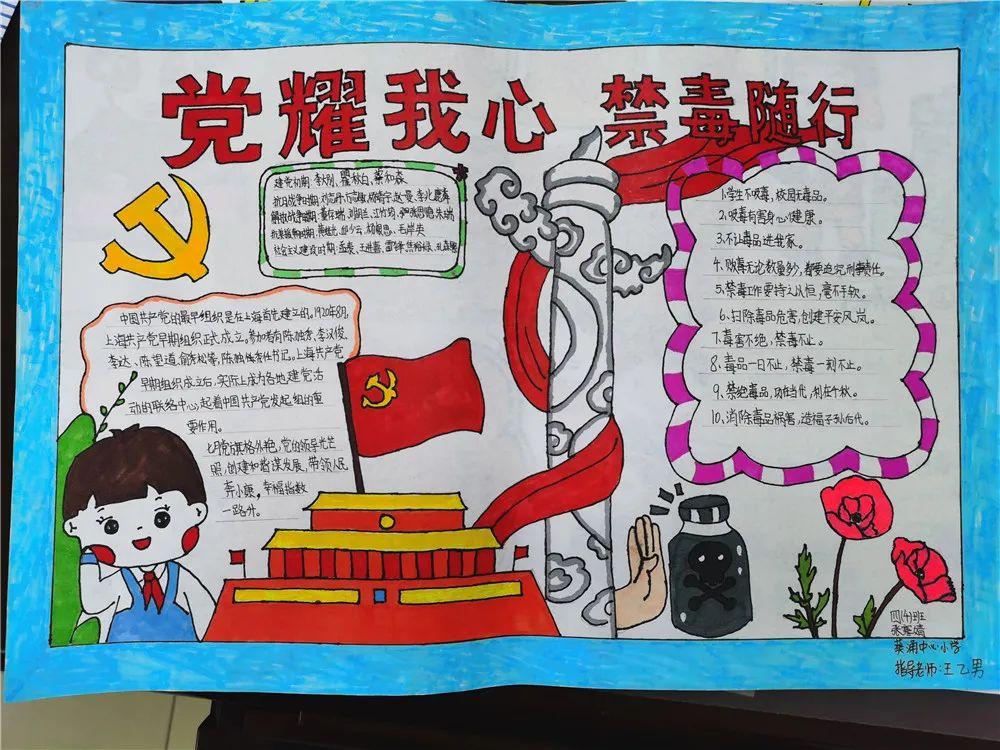 党耀我心 禁毒随行
建党初期:李大钊、瞿秋白、蔡和森
抗日战争时期:
解放战争时期:董存瑞、刘胡兰、江竹筠、
邱少云、杨根思、毛岸英
社会主义建设时期:孟泰、王进喜、雷锋、焦裕禄、
中国共产党的最早组织是在上海首先建立的。1920年8月,
上海共产党早期组织正式成立。参加者有陈独秀、李汉俊、
李达、陈望道、俞秀松等,陈独秀任书记。上海共产党
早期组织成立后,实际上成为各地建党活
动的联络中心,起着中国共产党发起组的重
要作用。
七月党旗格外艳,党的领导光芒
照,创建和谐谋发展,带领人民
奔小康,幸福指数
一路升。
1、学生不吸毒,校园无毒品。
2、吸毒有害身心健康。
3、不让毒品进我家。
4、贩毒无论数量多少,都要追究刑事责任。
5、禁毒工作要持之以恒,毫不手软。
6、扫除毒品危害,创建平安凤岚。
7、毒害不绝,禁毒不止。
8、毒品一日不止,禁毒一刻不止。
9、禁绝毒品,功在当代,利在千秋。
10、消除毒品祸害,造福子孙后代。
四(4)班
葵涌中心小学
指导老师:王乙男